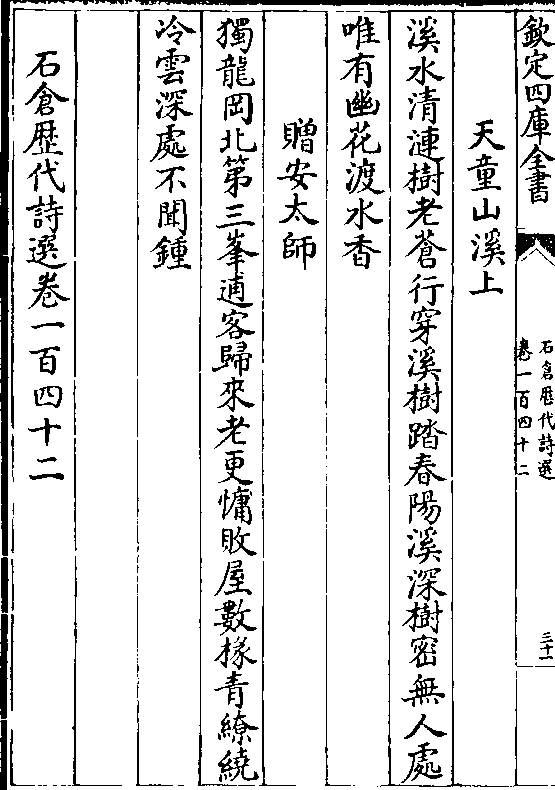 欽定四庫全書
石倉歷代詩選
卷一百四十二
三十一
天童山溪上
溪水清漣樹老蒼行穿溪樹踏春陽溪深樹密無人處
唯有幽花渡水香
贈安太師
獨龍岡北第三峯逋客歸來老更慵敗屋數椽青繚繞
冷雲深處不聞鍾
石倉歷代詩選卷一百四十二